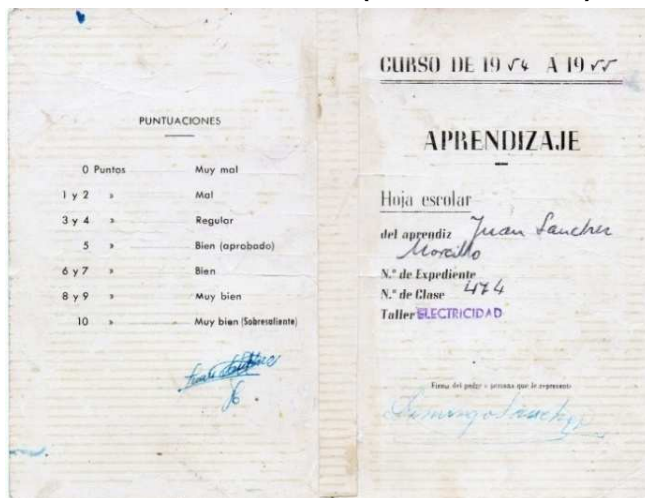 PUNTUACIONES
0 Puntos Muy mal
1 y 2 » Mal
3 y 4 » Regular
5 » Bien (aprobado)
6 y 7 » Bien
8 y 9 » Muy bien
10 » Muy bien (Sobresaliente)
CURSO DE 1954 A 1955
APRENDIZAJE
Hoja escolar
del aprendiz Juan Sanchez
Morcillo
N.º de Expediente
N.º de Clase 474
Taller ELECTRICIDAD
Firma del padre o persona que le represente
Domingo Sanchez